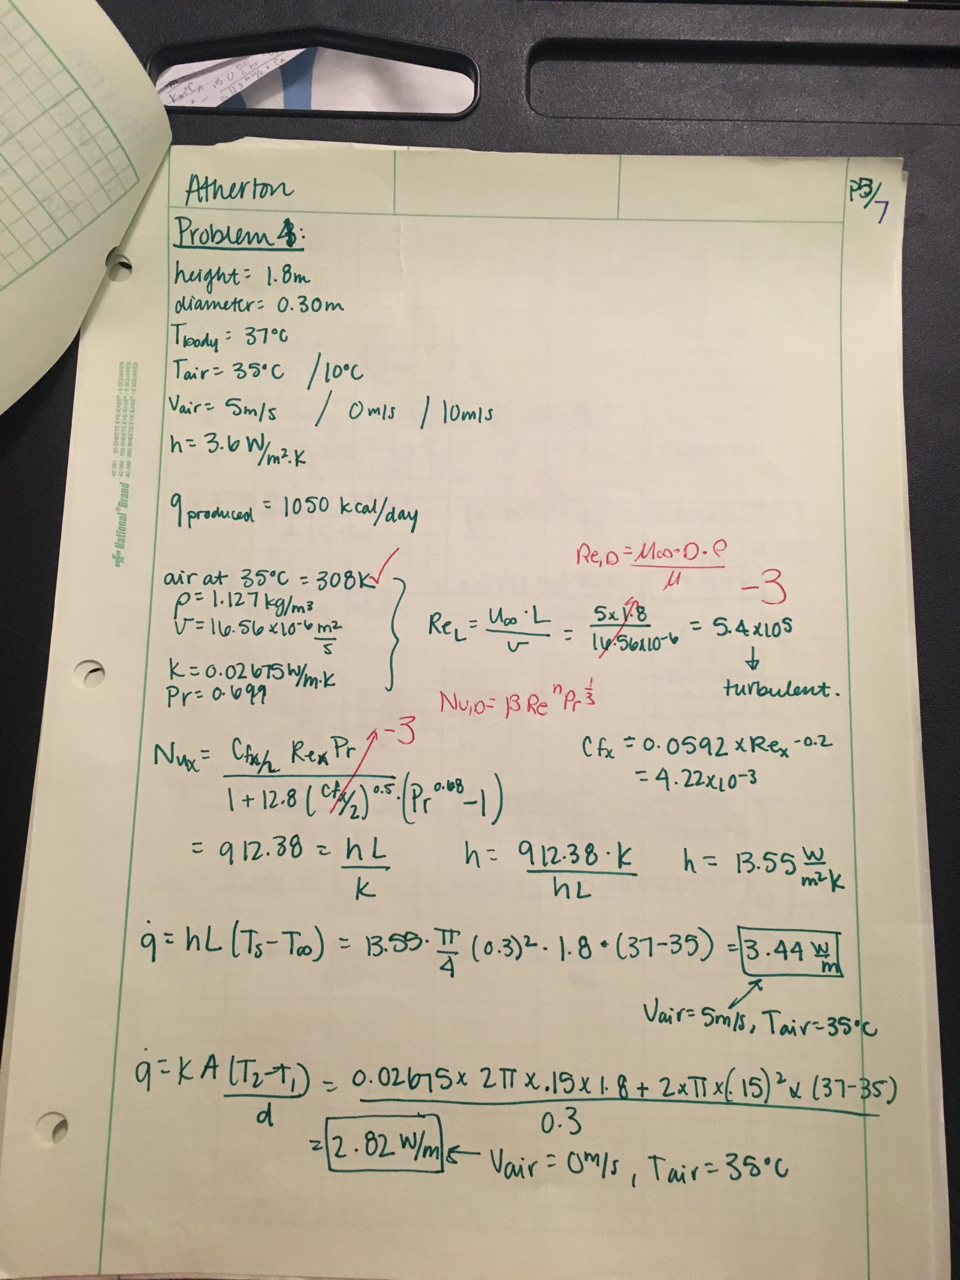 Atherton
p5/7
Problem 4:
height = 1.8m
diameter = 0.30m
Tbody = 37°C
Tair = 35°C / 10°C
Vair = 5m/s / 0m/s / 10m/s
h = 3.6 W/m²·K
qproduced = 1050 kcal/day
air at 35°C = 308K ✓
ρ = 1.127 kg/m³
ν = 16.56×10⁻⁶ m²/s
K = 0.02675 W/m·K
Pr = 0.699
Re,D = μ∞·D·ρ / μ
-3
ReL = u∞·L / ν = 5×1.8 / 16.56×10⁻⁶ = 5.4×10⁵
↓
turbulent.
Nu,D = β Reⁿ Pr^1/3
-3
Nux = Cfx/2 Rex Pr / 1+12.8(Cfx/2)^0.5·(Pr^0.68-1)
Cfx = 0.0592 × Rex^-0.2
= 4.22×10⁻³
= 912.38 = hL / K h = 912.38·K / hL h = 13.55 W/m²K
q̇ = hL(Ts-T∞) = 13.55·π/4 (0.3)²·1.8·(37-35) = 3.44 W/m
Vair = 5m/s, Tair = 35°C
q̇ = KA(T2-T1) / d = 0.02675 × 2π × .15 × 1.8 + 2×π×(.15)² × (37-35) / 0.3
= 2.82 W/m ← Vair = 0m/s, Tair = 35°C
National® Brand